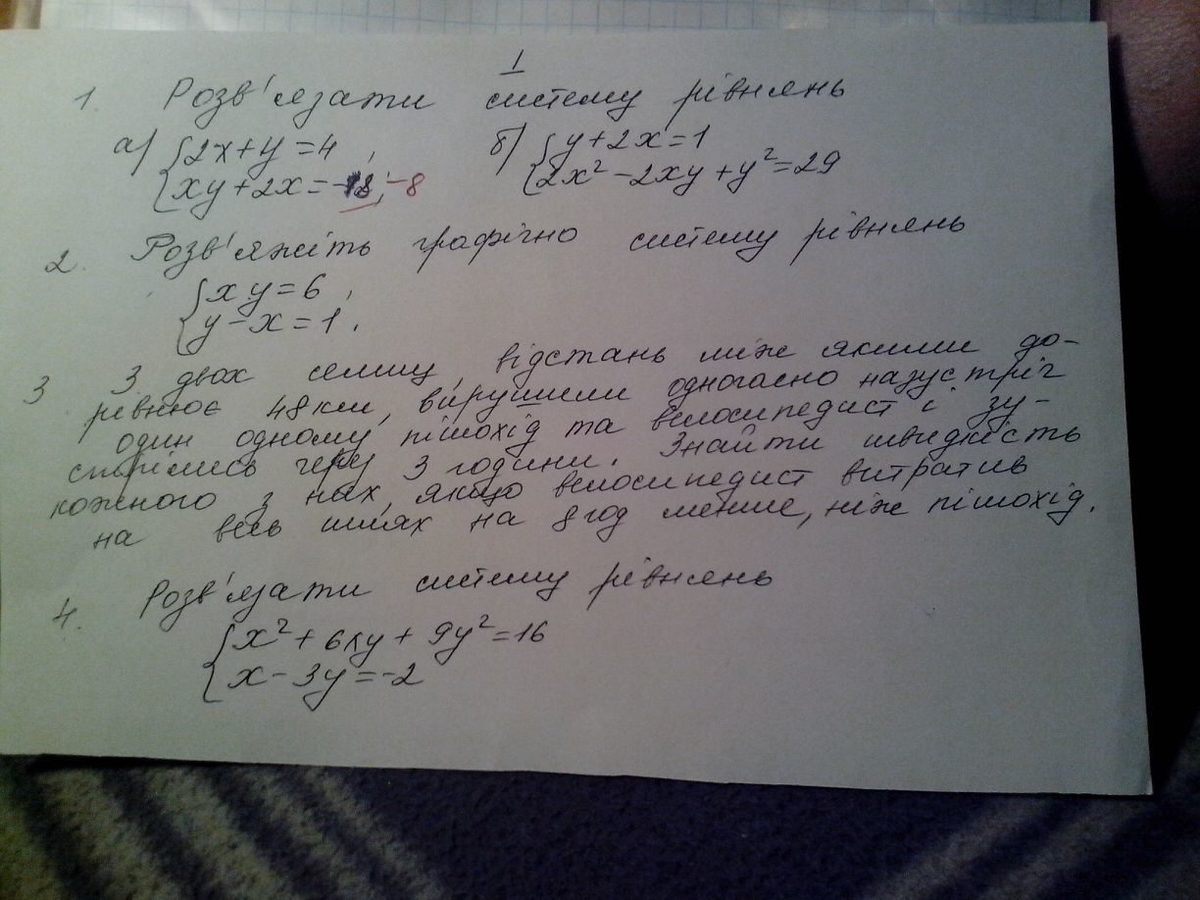 1
1 Розв'язати систему рівнянь
а) {2x+y=4, б) {y+2x=1
{xy+2x=-18; -8 {2x²-2xy+y²=29
2. Розв'яжіть графічно систему рівнянь
{xy=6,
{y-x=1.
3 З двох селищ, відстань між якими до-
рівнює 48 км, вирушили одночасно назустріч
один одному пішохід та велосипедист і зу-
стрілись через 3 години. Знайти швидкість
кожного з них, якщо велосипедист витратив
на весь шлях на 8 год менше, ніж пішохід.
4. Розв'язати систему рівнянь
{x²+6xy+9y²=16
{x-3y=-2